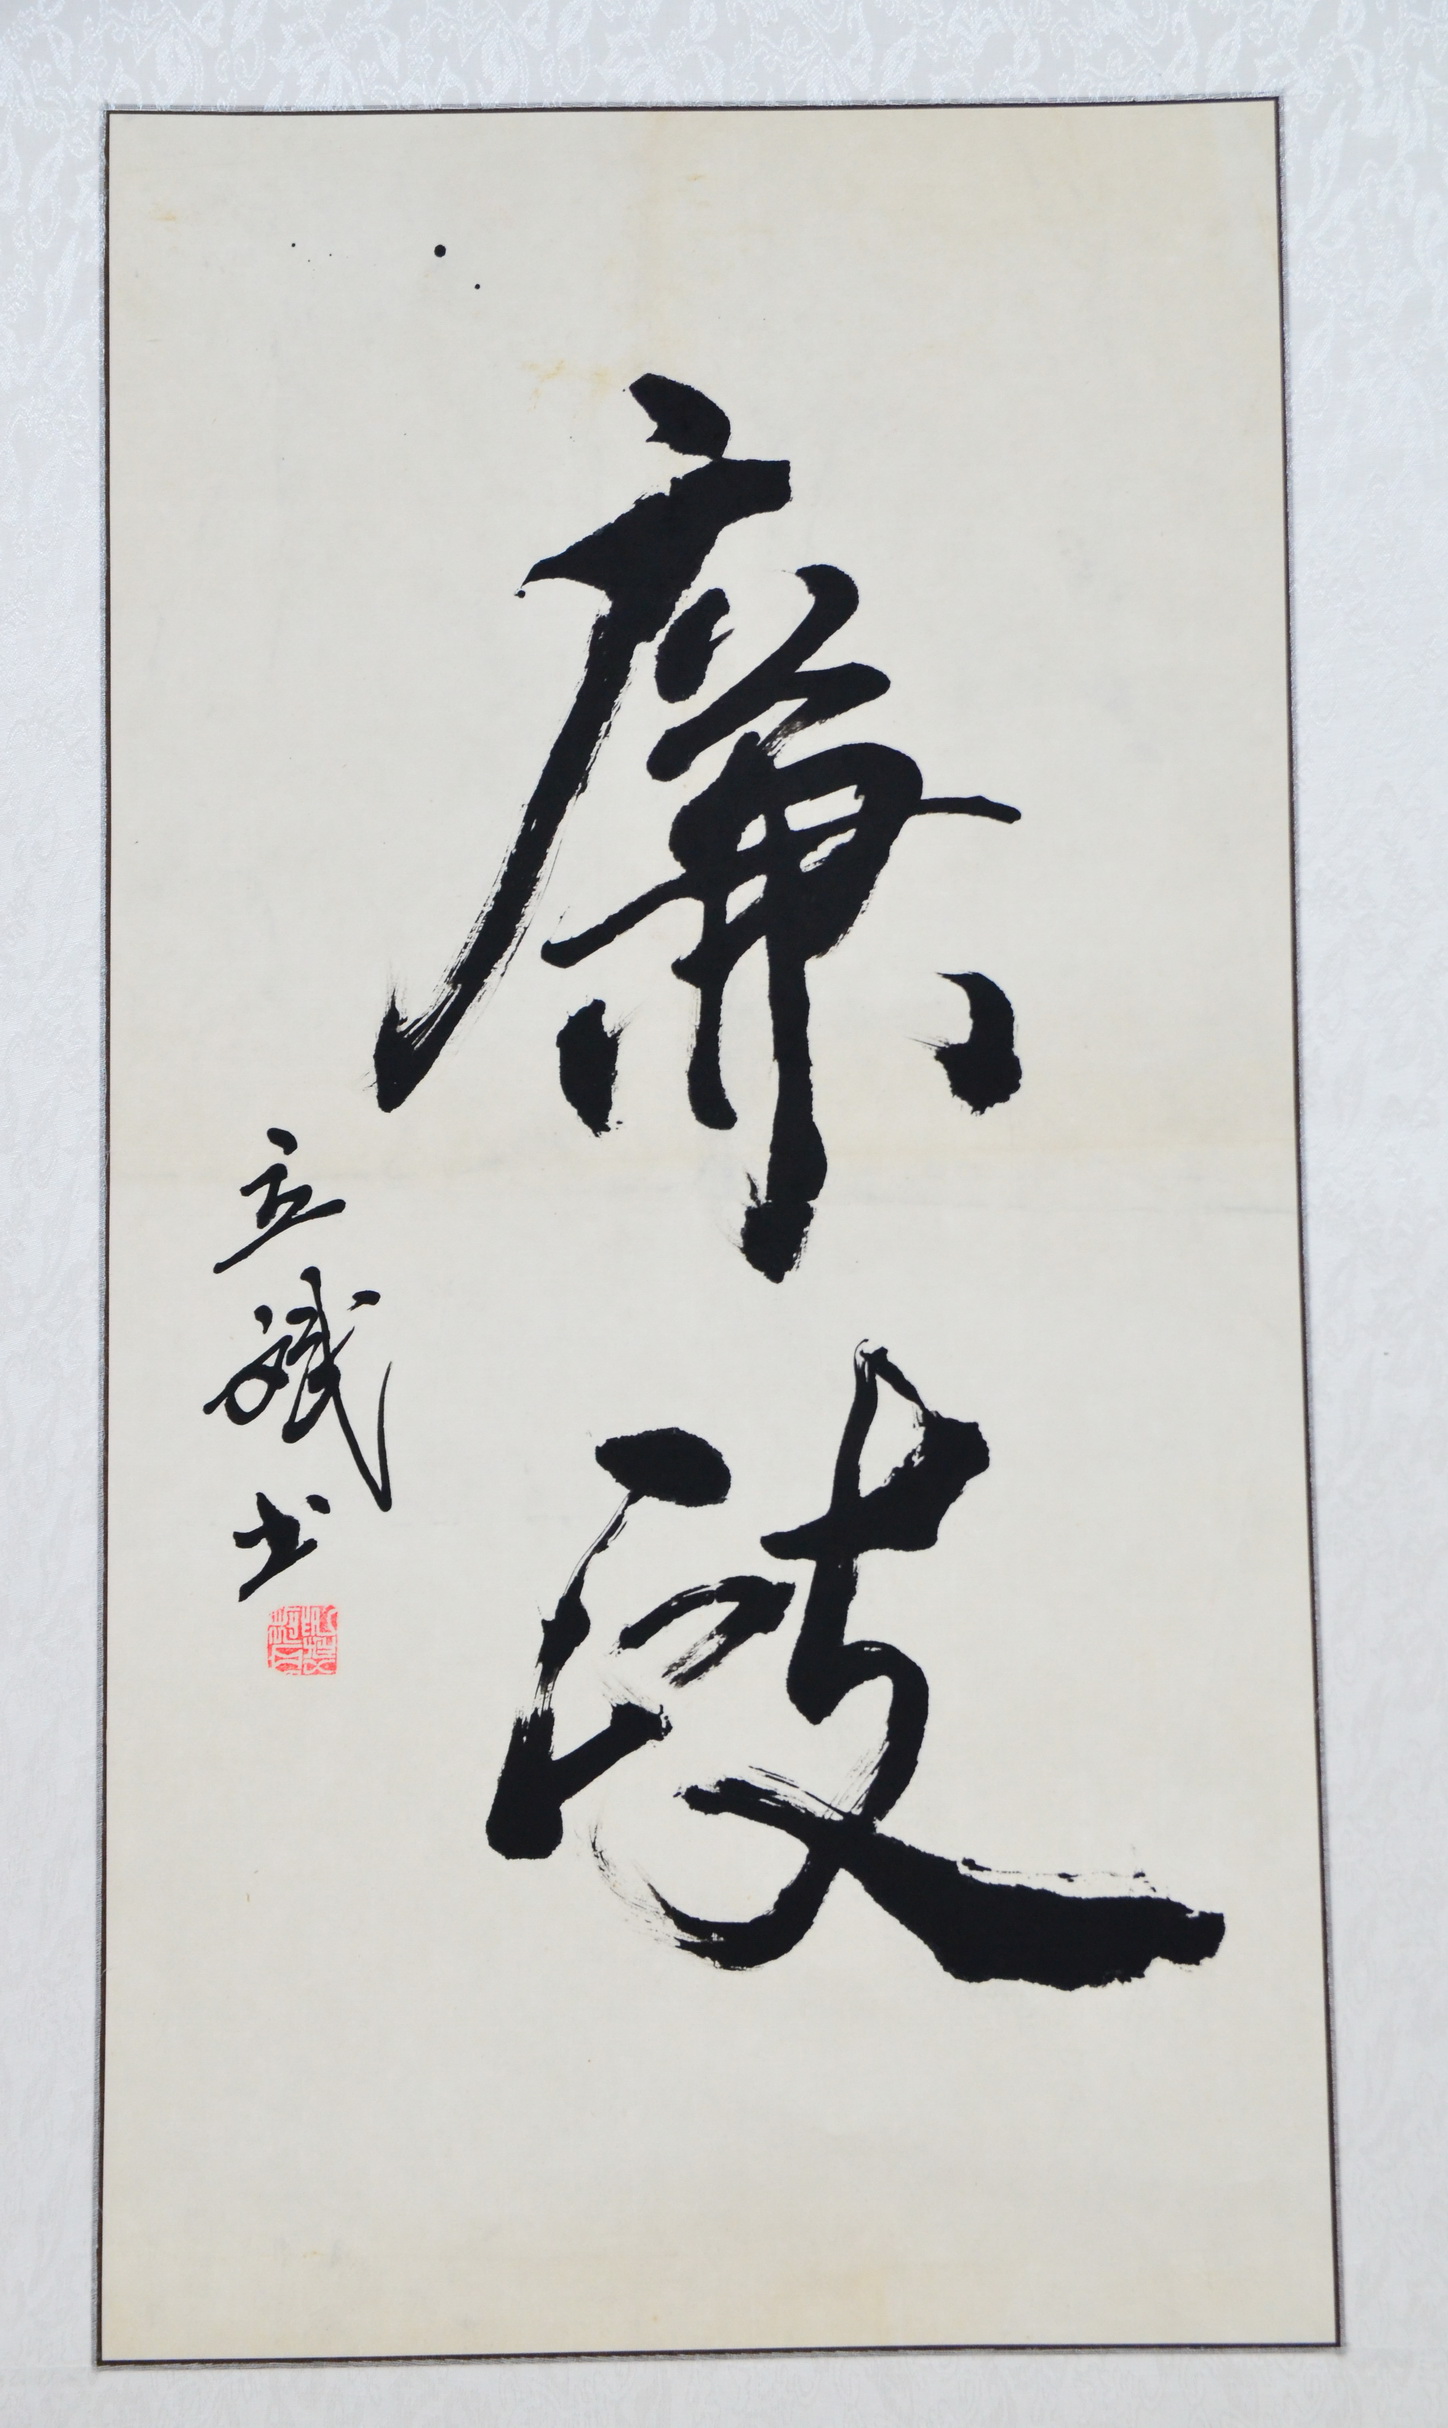 廉政
立斌书